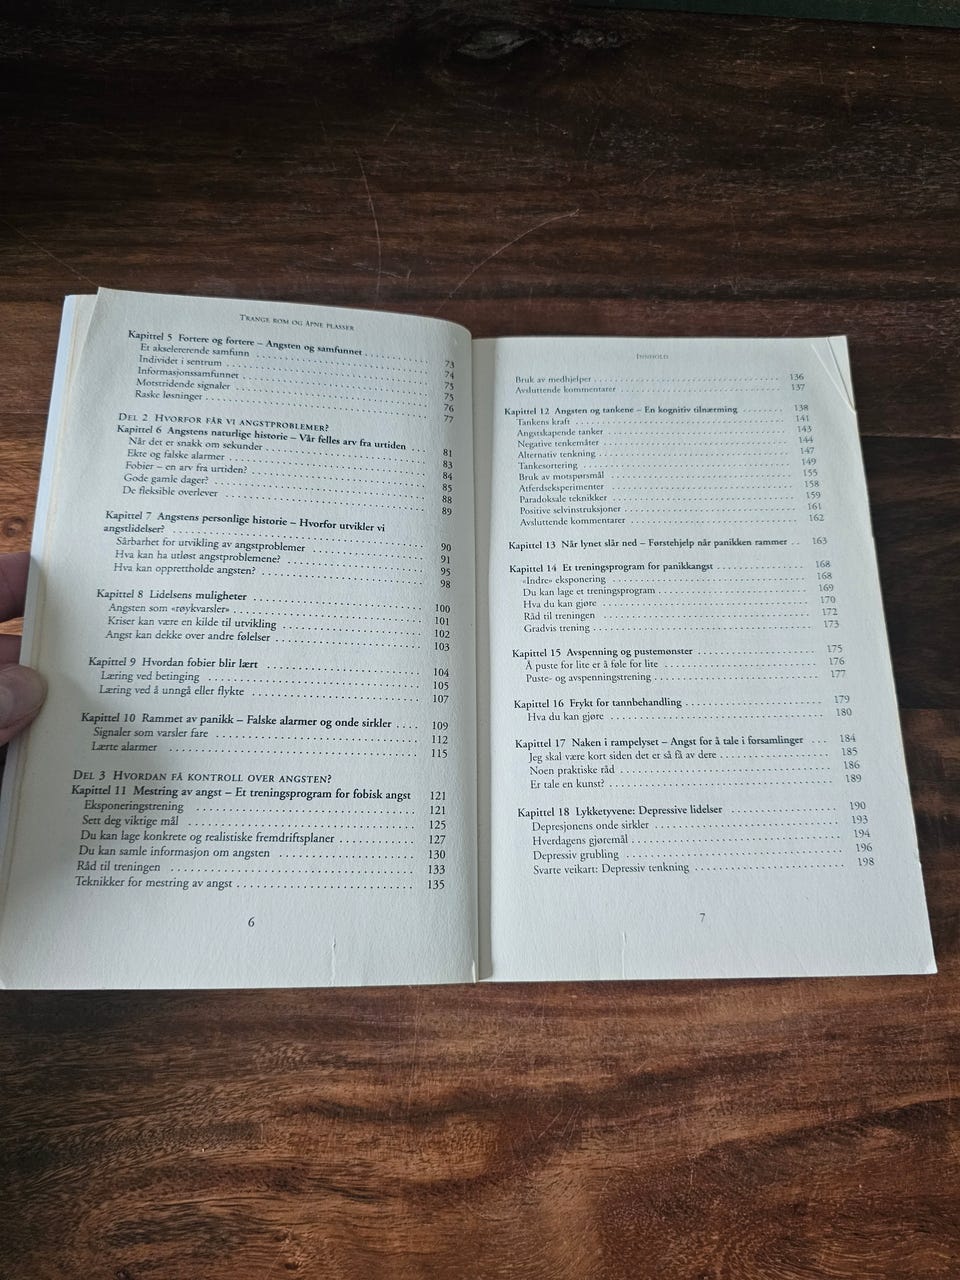 TRANGE ROM OG ÅPNE PLASSER
Kapittel 5 Fortere og fortere – Angsten og samfunnet 73
Et akselererende samfunn 74
Individet i sentrum 75
Informasjonssamfunnet 75
Motstridende signaler 76
Raske løsninger 77
DEL 2 HVORFOR FÅR VI ANGSTPROBLEMER?
Kapittel 6 Angstens naturlige historie – Vår felles arv fra urtiden 81
Når det er snakk om sekunder 83
Ekte og falske alarmer 84
Fobier – en arv fra urtiden? 85
Gode gamle dager? 88
De fleksible overlever 89
Kapittel 7 Angstens personlige historie – Hvorfor utvikler vi
angstlidelser? 90
Sårbarhet for utvikling av angstproblemer 91
Hva kan ha utløst angstproblemene? 95
Hva kan opprettholde angsten? 98
Kapittel 8 Lidelsens muligheter 100
Angsten som «røykvarsler» 101
Kriser kan være en kilde til utvikling 102
Angst kan dekke over andre følelser 103
Kapittel 9 Hvordan fobier blir lært 104
Læring ved betinging 105
Læring ved å unngå eller flykte 107
Kapittel 10 Rammet av panikk – Falske alarmer og onde sirkler 109
Signaler som varsler fare 112
Lærte alarmer 115
DEL 3 HVORDAN FÅ KONTROLL OVER ANGSTEN?
Kapittel 11 Mestring av angst – Et treningsprogram for fobisk angst 121
Eksponeringstrening 121
Sett deg viktige mål 125
Du kan lage konkrete og realistiske fremdriftsplaner 127
Du kan samle informasjon om angsten 130
Råd til treningen 133
Teknikker for mestring av angst 135
6
INNHOLD
Bruk av medhjelper 136
Avsluttende kommentarer 137
Kapittel 12 Angsten og tankene – En kognitiv tilnærming 138
Tankens kraft 141
Angstskapende tanker 143
Negative tenkemåter 144
Alternativ tenkning 147
Tankesortering 149
Bruk av motspørsmål 155
Atferdseksperimenter 158
Paradoksale teknikker 159
Positive selvinstruksjoner 161
Avsluttende kommentarer 162
Kapittel 13 Når lynet slår ned – Førstehjelp når panikken rammer 163
Kapittel 14 Et treningsprogram for panikkangst 168
«Indre» eksponering 168
Du kan lage et treningsprogram 169
Hva du kan gjøre 170
Råd til treningen 172
Gradvis trening 173
Kapittel 15 Avspenning og pustemønster 175
Å puste for lite er å føle for lite 176
Puste- og avspenningstrening 177
Kapittel 16 Frykt for tannbehandling 179
Hva du kan gjøre 180
Kapittel 17 Naken i rampelyset – Angst for å tale i forsamlinger 184
Jeg skal være kort siden det er så få av dere 185
Noen praktiske råd 186
Er tale en kunst? 189
Kapittel 18 Lykketyvene: Depressive lidelser 190
Depresjonens onde sirkler 193
Hverdagens gjøremål 194
Depressiv grubling 196
Svarte veikart: Depressiv tenkning 198
7